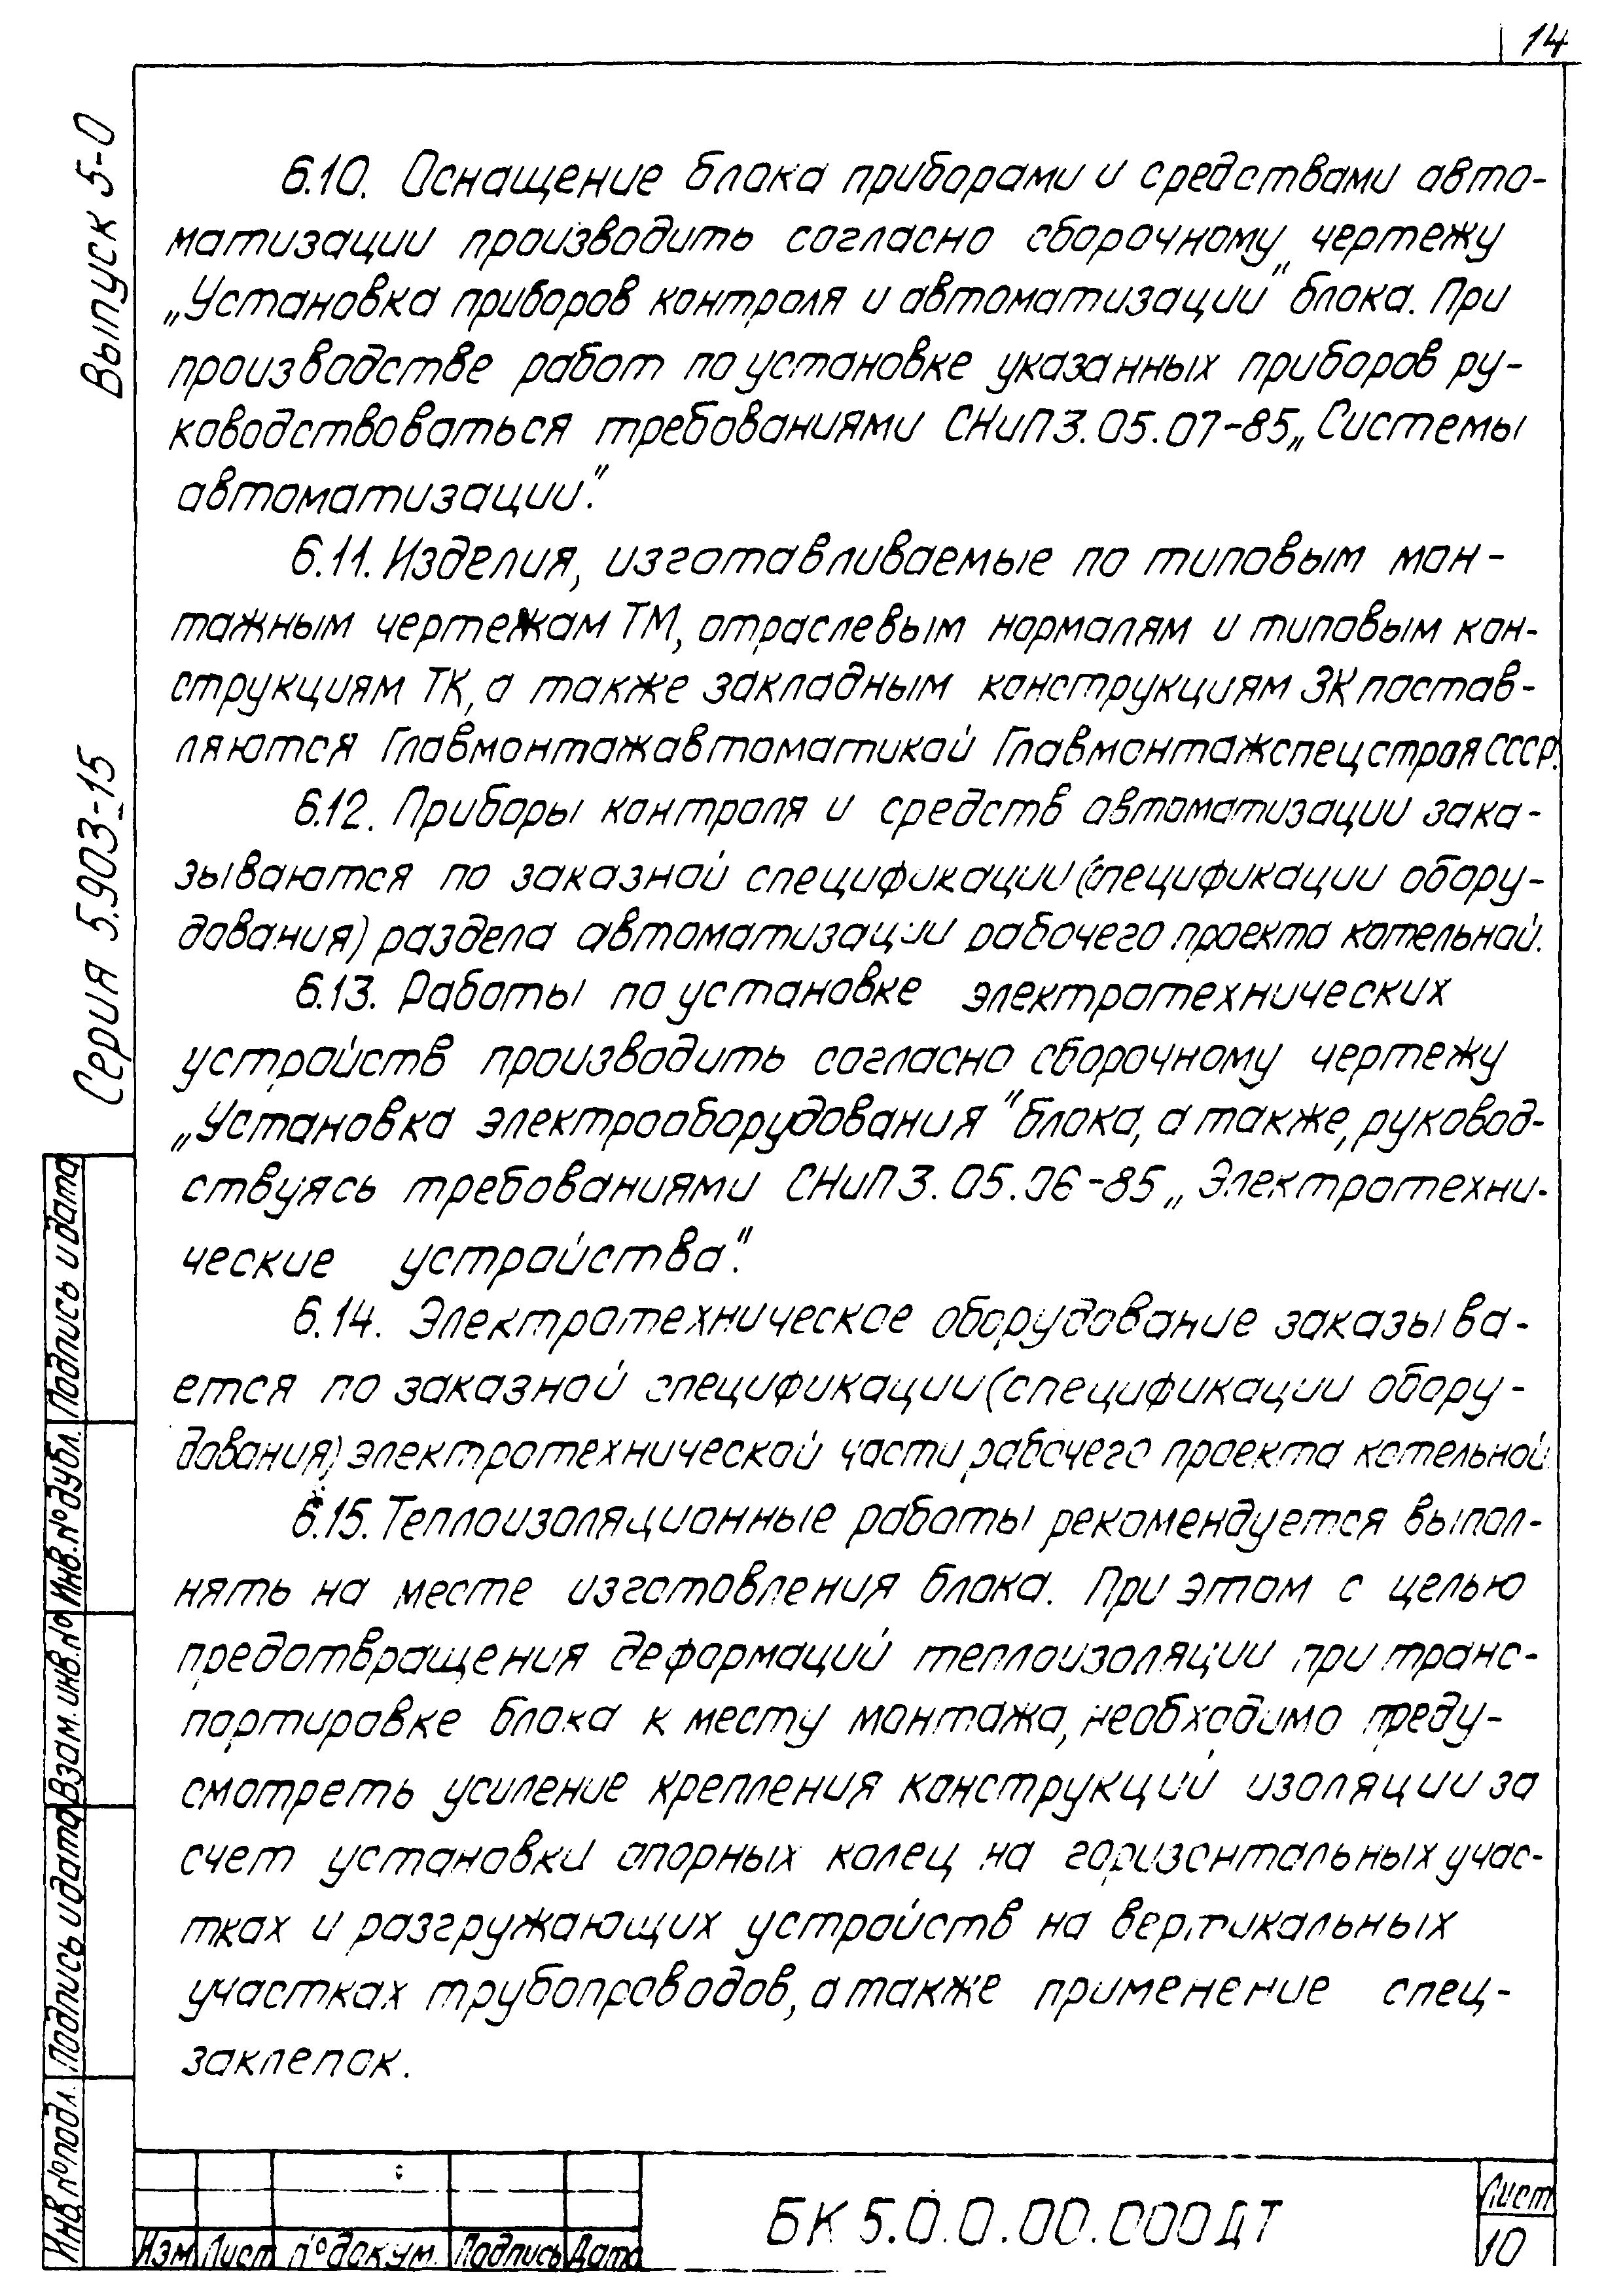 14
Выпуск 5-0
Серия 5.903-15
6.10. Оснащение блока приборами и средствами авто-
матизации производить согласно сборочному чертежу
„Установка приборов контроля и автоматизации" блока. При
производстве работ по установке указанных приборов ру-
ководствоваться требованиями СНиП 3.05.07-85 „Системы
автоматизации".
6.11. Изделия, изготавливаемые по типовым мон-
тажным чертежам ТМ, отраслевым нормалям и типовым кон-
струкциям ТК, а также закладным конструкциям ЗК постав-
ляются Главмонтажавтоматикой Главмонтажспецстроя СССР.
6.12. Приборы контроля и средств автоматизации зака-
зываются по заказной спецификации (спецификации обору-
дования) раздела автоматизации рабочего проекта котельной.
6.13. Работы по установке электротехнических
устройств производить согласно сборочному чертежу
„Установка электрооборудования" блока, а также, руковод-
ствуясь требованиями СНиП 3.05.06-85 „Электротехни-
ческие устройства".
6.14. Электротехническое оборудование заказыва-
ется по заказной спецификации (спецификации обору-
дования) электротехнической части рабочего проекта котельной
6.15. Теплоизоляционные работы рекомендуется выпол-
нять на месте изготовления блока. При этом с целью
предотвращения деформаций теплоизоляции при транс-
портировке блока к месту монтажа, необходимо преду-
смотреть усиление крепления конструкций изоляции за
счет установки опорных колец на горизонтальных учас-
тках и разгружающих устройств на вертикальных
участках трубопроводов, а также применение спец-
заклепок.
Подпись и дата
Инв. № дубл.
Взам. инв. №
Подпись и дата
Инв № подл.
Изм Лист № докум. Подпись Дата
БК 5.0.0.00.000ДТ
Лист
10